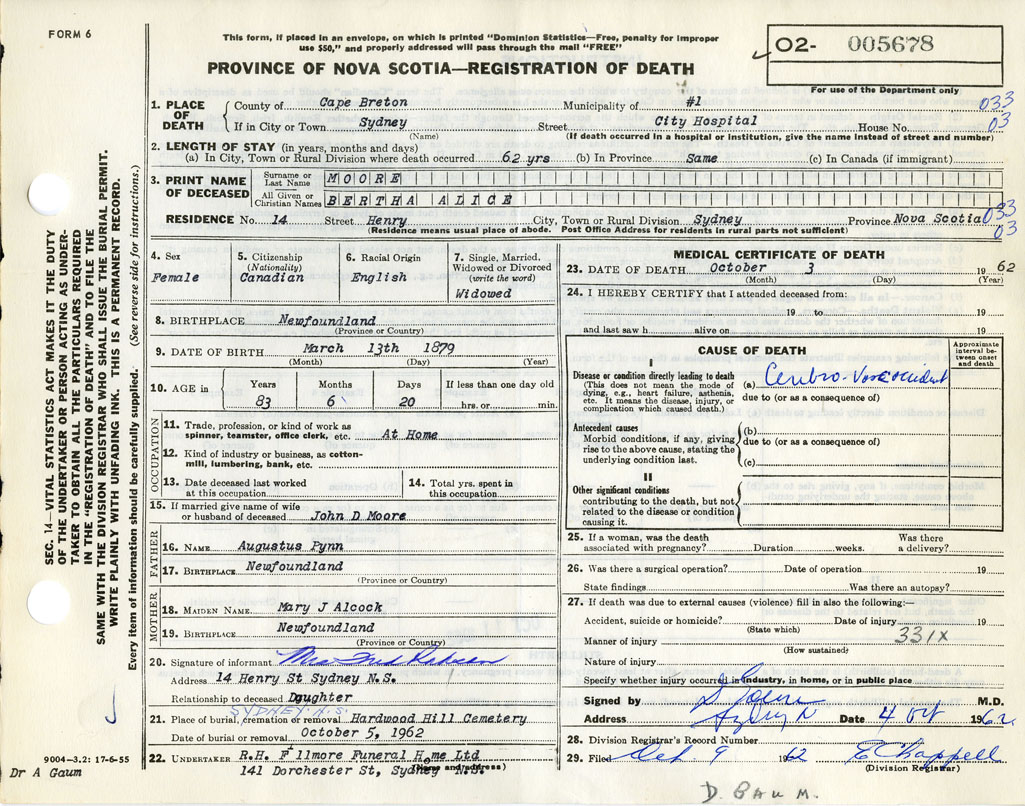 FORM 6
This form, if placed in an envelope, on which is printed "Dominion Statistics—Free, penalty for improper
use $50," and properly addressed will pass through the mail "FREE"
PROVINCE OF NOVA SCOTIA—REGISTRATION OF DEATH
02- 005678
For use of the Department only
1. PLACE OF DEATH County of Cape Breton Municipality of #1 033
If in City or Town Sydney Street City Hospital House No. 03
(Name) (If death occurred in a hospital or institution, give the name instead of street and number)
2. LENGTH OF STAY (in years, months and days)
(a) In City, Town or Rural Division where death occurred 62 yrs (b) In Province Same (c) In Canada (if immigrant)
3. PRINT NAME OF DECEASED Surname or Last Name MOORE
All Given or Christian Names BERTHA ALICE
RESIDENCE No. 14 Street Henry City, Town or Rural Division Sydney Province Nova Scotia 033
(Residence means usual place of abode. Post Office Address for residents in rural parts not sufficient) 03
4. Sex Female
5. Citizenship (Nationality) Canadian
6. Racial Origin English
7. Single, Married, Widowed or Divorced (write the word) Widowed
8. BIRTHPLACE Newfoundland
(Province or Country)
9. DATE OF BIRTH March 13th 1879
(Month) (Day) (Year)
10. AGE in Years Months Days If less than one day old
83 6 20 hrs. or min.
OCCUPATION
11. Trade, profession, or kind of work as
spinner, teamster, office clerk, etc. At Home
12. Kind of industry or business, as cotton-
mill, lumbering, bank, etc.
13. Date deceased last worked
at this occupation
14. Total yrs. spent in
this occupation
15. If married give name of wife
or husband of deceased John D Moore
FATHER
16. NAME Augustus Pynn
17. BIRTHPLACE Newfoundland
(Province or Country)
MOTHER
18. MAIDEN NAME Mary J Alcock
19. BIRTHPLACE Newfoundland
(Province or Country)
20. Signature of informant Mrs Fred
Address 14 Henry St Sydney N.S.
Relationship to deceased Daughter
SYDNEY N.S.
21. Place of burial, cremation or removal Hardwood Hill Cemetery
Date of burial or removal October 5, 1962
22. UNDERTAKER R.H. Fillmore Funeral Home Ltd
(Name and address)
141 Dorchester St, Sydney N.S.
MEDICAL CERTIFICATE OF DEATH
23. DATE OF DEATH October 3 1962
(Month) (Day) (Year)
24. I HEREBY CERTIFY that I attended deceased from:
19 to 19
and last saw h alive on 19
CAUSE OF DEATH
Approximate interval between onset and death
I
Disease or condition directly leading to death
(This does not mean the mode of
dying, e.g., heart failure, asthenia,
etc. It means the disease, injury, or
complication which caused death.)
(a) Cerebro-Vasc accident
due to (or as a consequence of)
Antecedent causes
Morbid conditions, if any, giving
rise to the above cause, stating the
underlying condition last.
(b)
due to (or as a consequence of)
(c)
II
Other significant conditions
contributing to the death, but not
related to the disease or condition
causing it.
25. If a woman, was the death
associated with pregnancy? Duration weeks. Was there
a delivery?
26. Was there a surgical operation? Date of operation 19
State findings Was there an autopsy?
27. If death was due to external causes (violence) fill in also the following:
Accident, suicide or homicide? Date of injury 19
(State which)
Manner of injury 331X
(How sustained)
Nature of injury
Specify whether injury occurred in industry, in home, or in public place
Signed by M.D.
Address Date 4 Oct 1962
28. Division Registrar's Record Number
29. Filed Oct 9 1962 E Chappell
(Division Registrar)
SEC. 14—VITAL STATISTICS ACT MAKES IT THE DUTY
OF THE UNDERTAKER OR PERSON ACTING AS UNDER-
TAKER TO OBTAIN ALL THE PARTICULARS REQUIRED
IN THE "REGISTRATION OF DEATH" AND TO FILE THE
SAME WITH THE DIVISION REGISTRAR WHO SHALL ISSUE THE BURIAL PERMIT.
WRITE PLAINLY WITH UNFADING INK. THIS IS A PERMANENT RECORD.
Every item of information should be carefully supplied. (See reverse side for instructions.)
9004—3.2: 17-6-55
Dr A Gaum
D. GAUM.